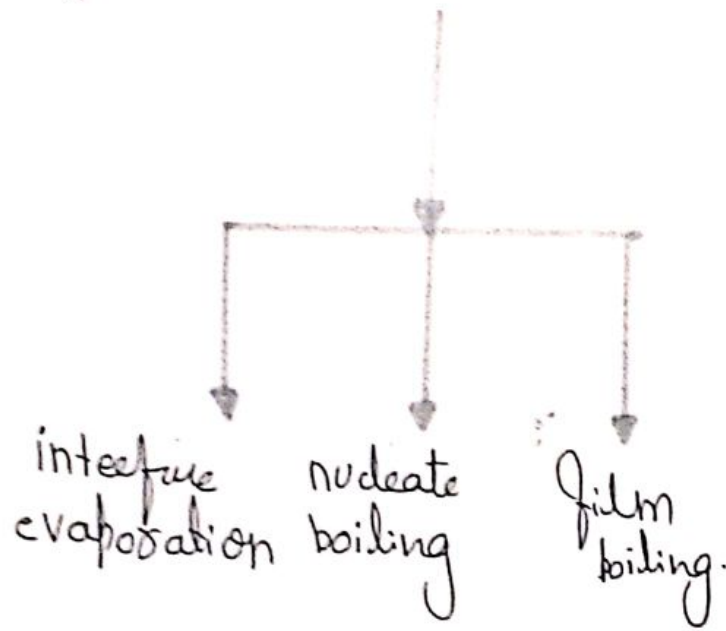 interface
evaporation
nucleate
boiling
film
boiling.